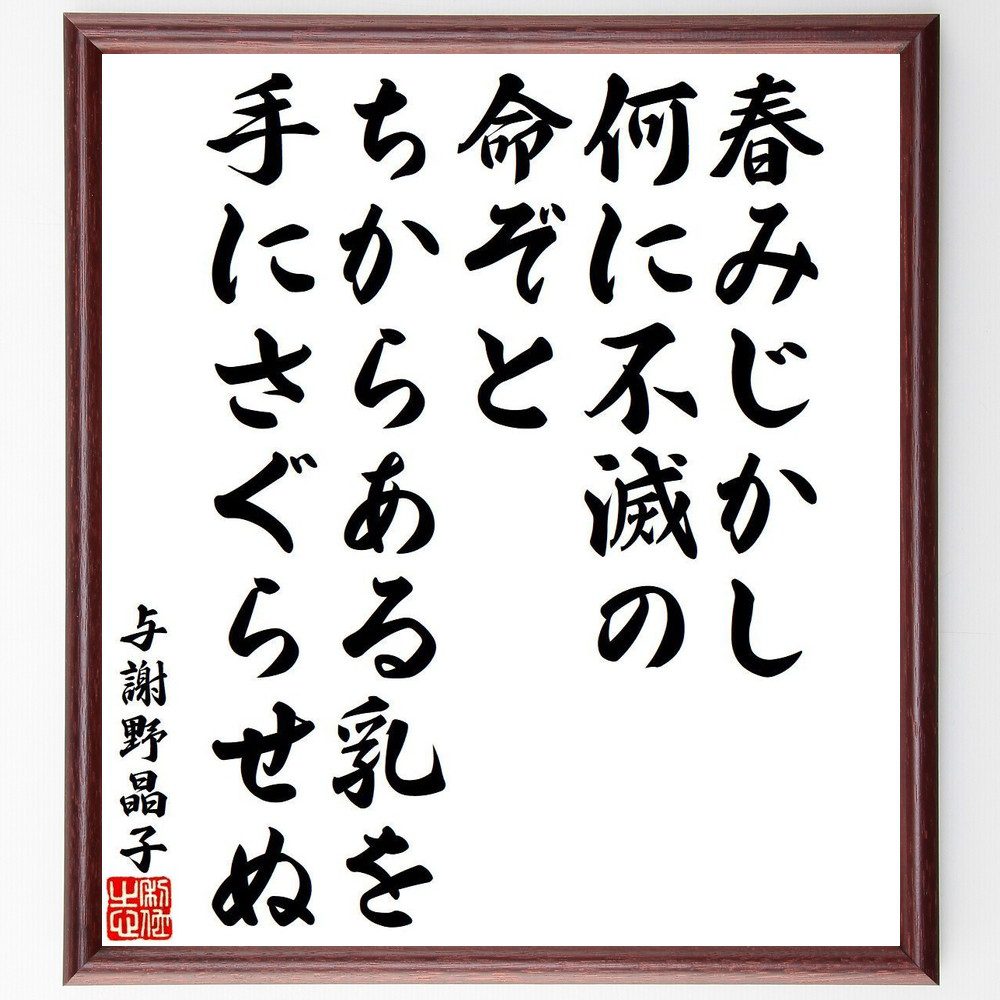 春みじかし
何に不滅の
命ぞと
ちからある乳を
手にさぐらせぬ
与謝野晶子